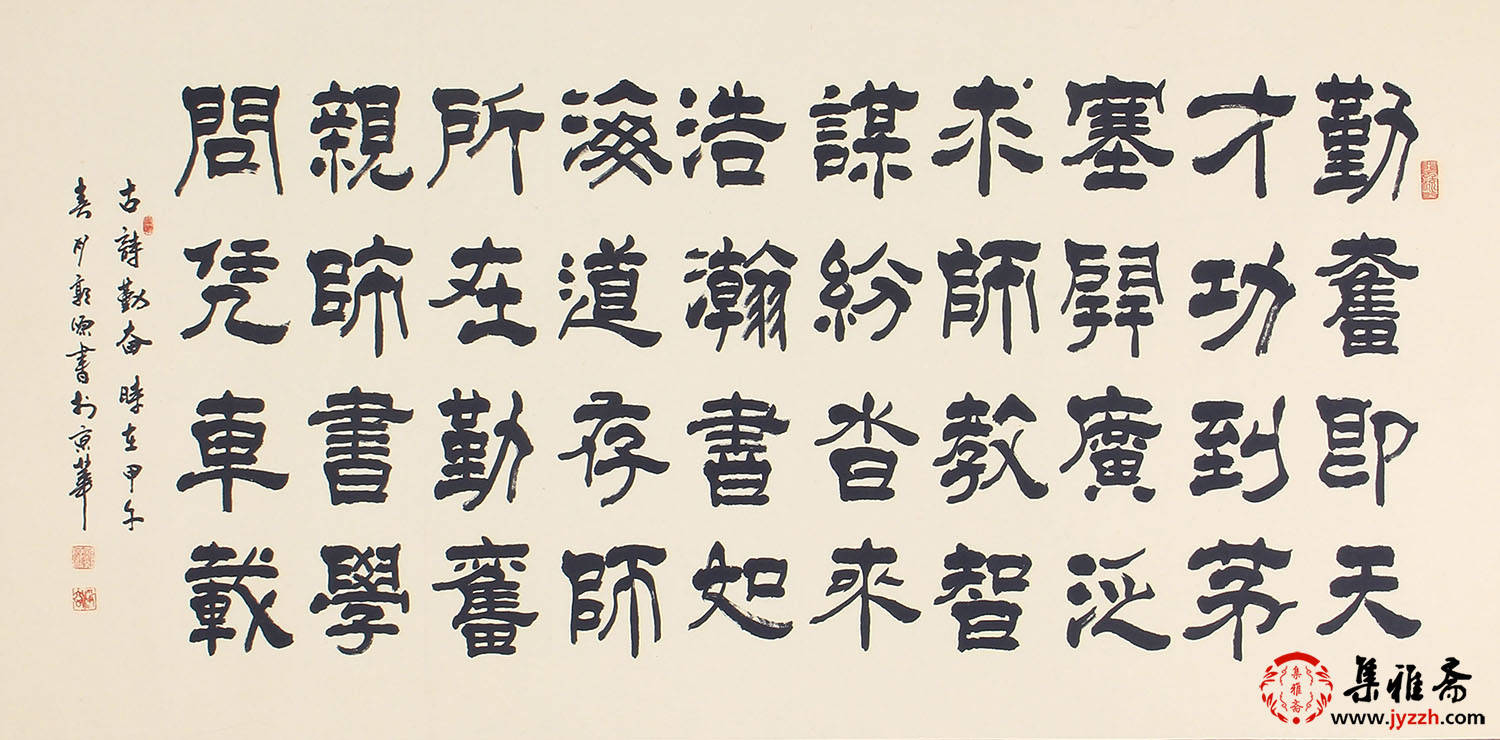 勤奮即天
才功到茅
塞開廣泛
求師教智
謀紛沓來
浩瀚書如
海道存師
所在勤奮
親師書學
問凭車載
古詩勤奋 時在甲午
春月郭源書於京華
集雅斋
集雅斋
www.jyzzh.com